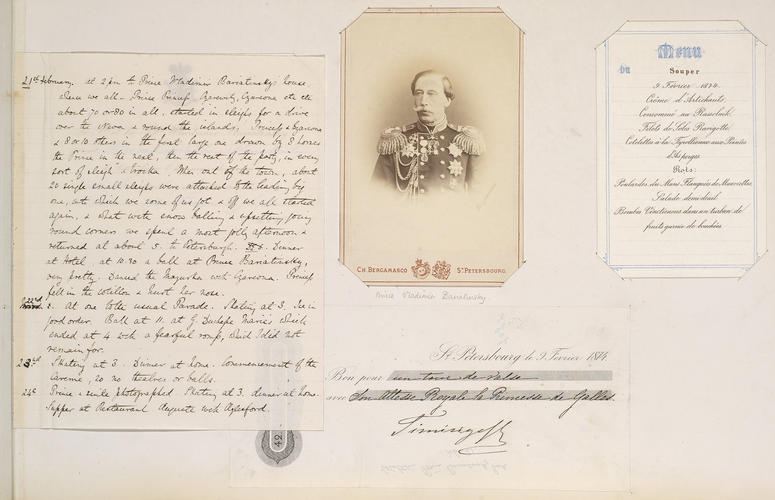 21st February. at 2 pm to Prince Vladimir Bariatinsky's house
where we all – Prince Princess, Czarevitz, Czarevna etc etc
about 70 or 80 in all, started in sleighs for a drive
over the Neva & round the islands, Princess & Czarevna
& 8 or 10 others in the first large one drawn by 8 horses
the Prince in the next, then the rest of the party, in every
sort of sleigh & troika. When out of the town, about
20 single small sleighs were attached to the leading big
one, into which we some of us got & off we all started
again, & what with snow balling & upsetting going
round corners we spent a most jolly afternoon &
returned at about 5. to Petersburgh. Dinner
at Hotel. at 10.30 a ball at Prince Bariatinsky,
very pretty. Danced the Mazurka with Czarevna. Princess
fell in the cotillon & hurt her nose.
22nd. At one to the usual Parade. Skating at 3. Ice in
good order. Ball at 11. at G. Duchesse Marie's which
ended at 4 with a fearful romp, which I did not
remain for.
23rd Skating at 3. Dinner at home. Commencement of the
Careme, so no theatres or balls.
24th Prince & suite photographed. Skating at 3. dinner at home.
Supper at Restaurant Auguste with Aylesford.
42
CH. BERGAMASCO ST. PETERSBOURG.
Prince Vladimir Bariatinsky
Menu
du
Souper
9 Février 1874.
Crème d'Artichauts
Consommé au Rassolnik
Filets de Sole
Cotelettes à la Tyrolienne aux Pointes
d'Asperges
Rots:
Poulardes du Mans Flanquées de Mauviettes
Salade demi-deuil
Bombe Vénitiennes dans un turban de
fruits garnie de
St. Pétersbourg le 9 Février 1874
Bon pour un tour de valse
avec Son Altesse Royale la Princesse de Galles.